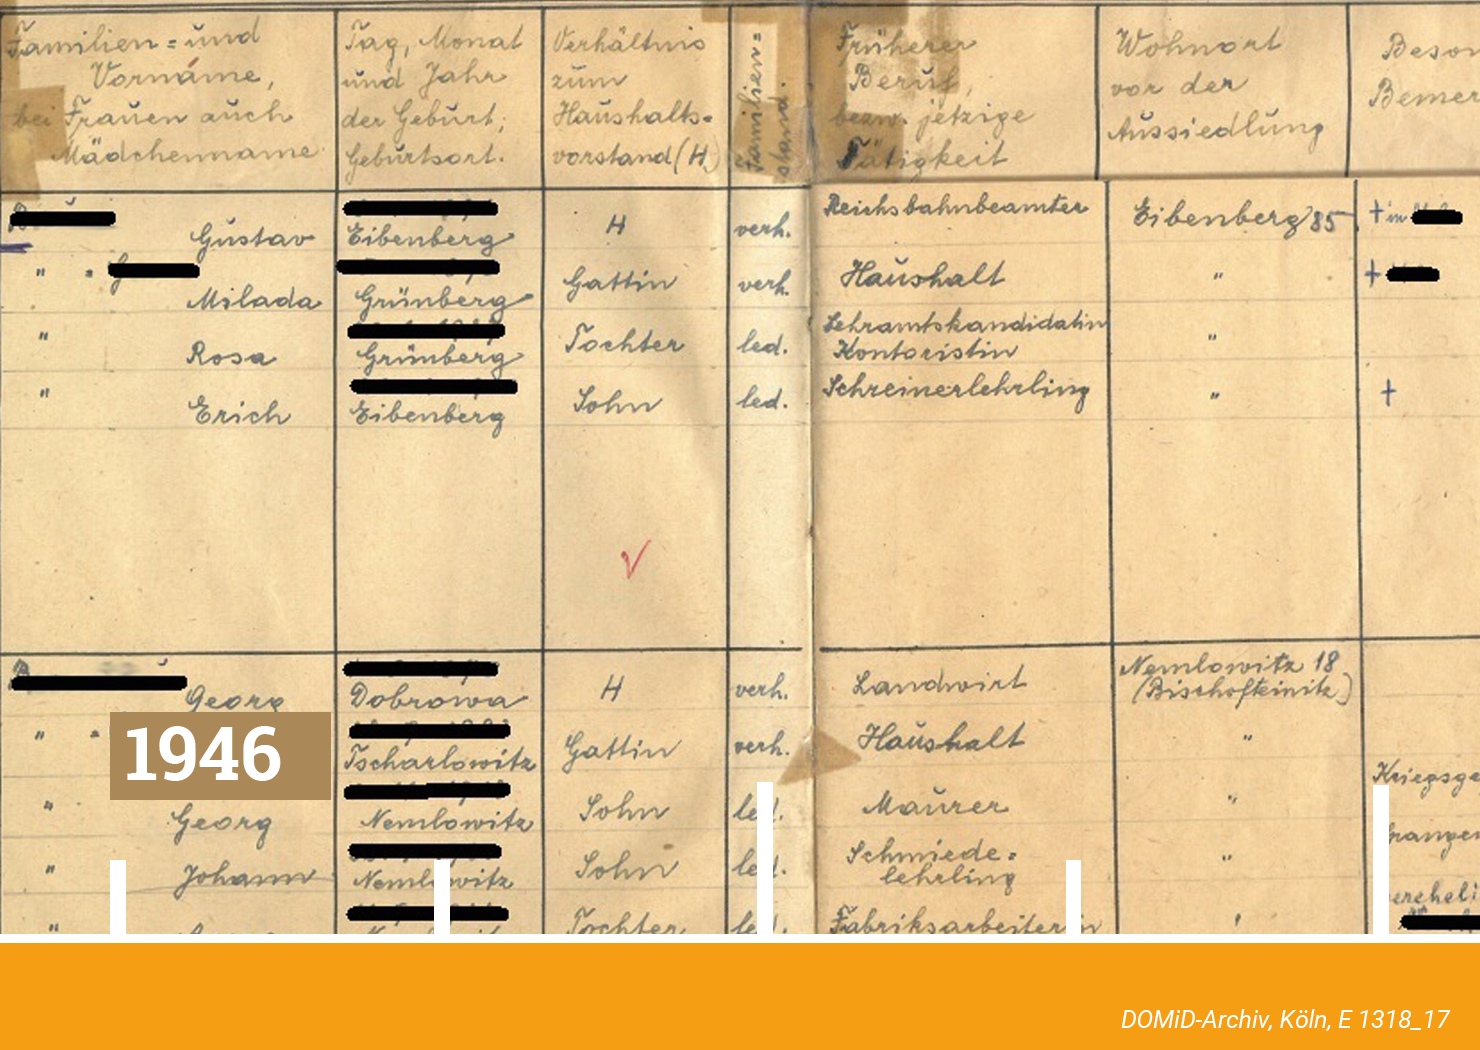 Familien= und
Vorname,
bei Frauen auch
Mädchenname
Tag, Monat
und Jahr
der Geburt;
Geburtsort.
Verhältnis
zum
Haushalts=
vorstand (H)
Familien=
stand.
Früherer
Beruf,
bezw. jetzige
Tätigkeit
Wohnort
vor der
Aussiedlung
Gustav
Eibenberg
H
verh.
Reichsbahnbeamter
Eibenberg 85
† in
" "
Milada
Grünberg
Gattin
verh.
Haushalt
"
†
"
Rosa
Grünberg
Tochter
led.
Lehramtskandidatin
Kontoristin
"
"
Erich
Eibenberg
Sohn
led.
Schreinerlehrling
"
†
Georg
Dobrowa
H
verh.
Landwirt
Nemlowitz 18
(Bischofteinitz)
" "
Tscharlowitz
Gattin
verh.
Haushalt
"
1946
"
Georg
Nemlowitz
Sohn
led.
Maurer
"
"
Johann
Nemlowitz
Sohn
led.
Schmiede=
lehrling
"
"
Tochter
led.
Fabriksarbeiterin
DOMiD-Archiv, Köln, E 1318_17